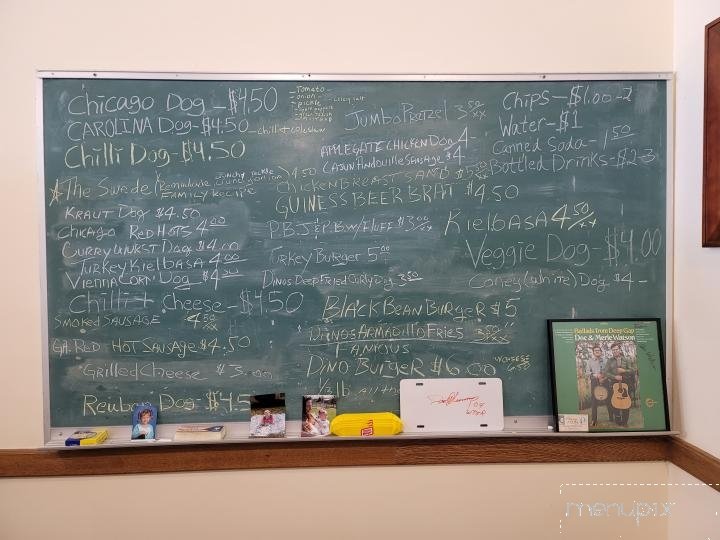 Chicago Dog - $4.50
Tomato
onion
pickle
celery salt
CAROLINA Dog - $4.50 - chilli + coleslaw
Chilli Dog - $4.50
The Swede
FAMILY RECIPE 4.50
KRAUT DOG $4.50
CHICAGO RED HOTS 4.00
CURRYWURST DOG $4.00
TURKEY KIELBASA 4.00
VIENNA CORN DOG $4.50
Chilli + Cheese - $4.50
SMOKED SAUSAGE 4.50/xx
GA. RED HOT SAUSAGE $4.50
GRILLED CHEESE $3.00
Reuben Dog - $4.5
JUMBO PRETZEL 3.50/xx
APPLEGATE CHICKEN DOG 4-
CAJUN ANDOUILLE SAUSAGE $4
CHICKEN BREAST SAND
GUINESS BEER BRAT $4.50
P.B.J & P.BW/FLUFF $3.00/xx
TURKEY BURGER 5.00
DINOS DEEP FRIED CURLY DOG 3.50
BLACK BEAN BURGER $5
DINOS ARMADILLO FRIES 3.50/xx
FAMOUS
DINO BURGER $6.00
W/CHEESE 6.50
1/3 lb All the
CHIPS - $1.00-2
Water - $1
Canned Soda - 1.50
Bottled Drinks - $2-3
KIELBASA 4.50/xx
Veggie Dog - $4.00
Coney (white) Dog $4-
Ballads from Deep Gap
Doc & Merle Watson
menupix